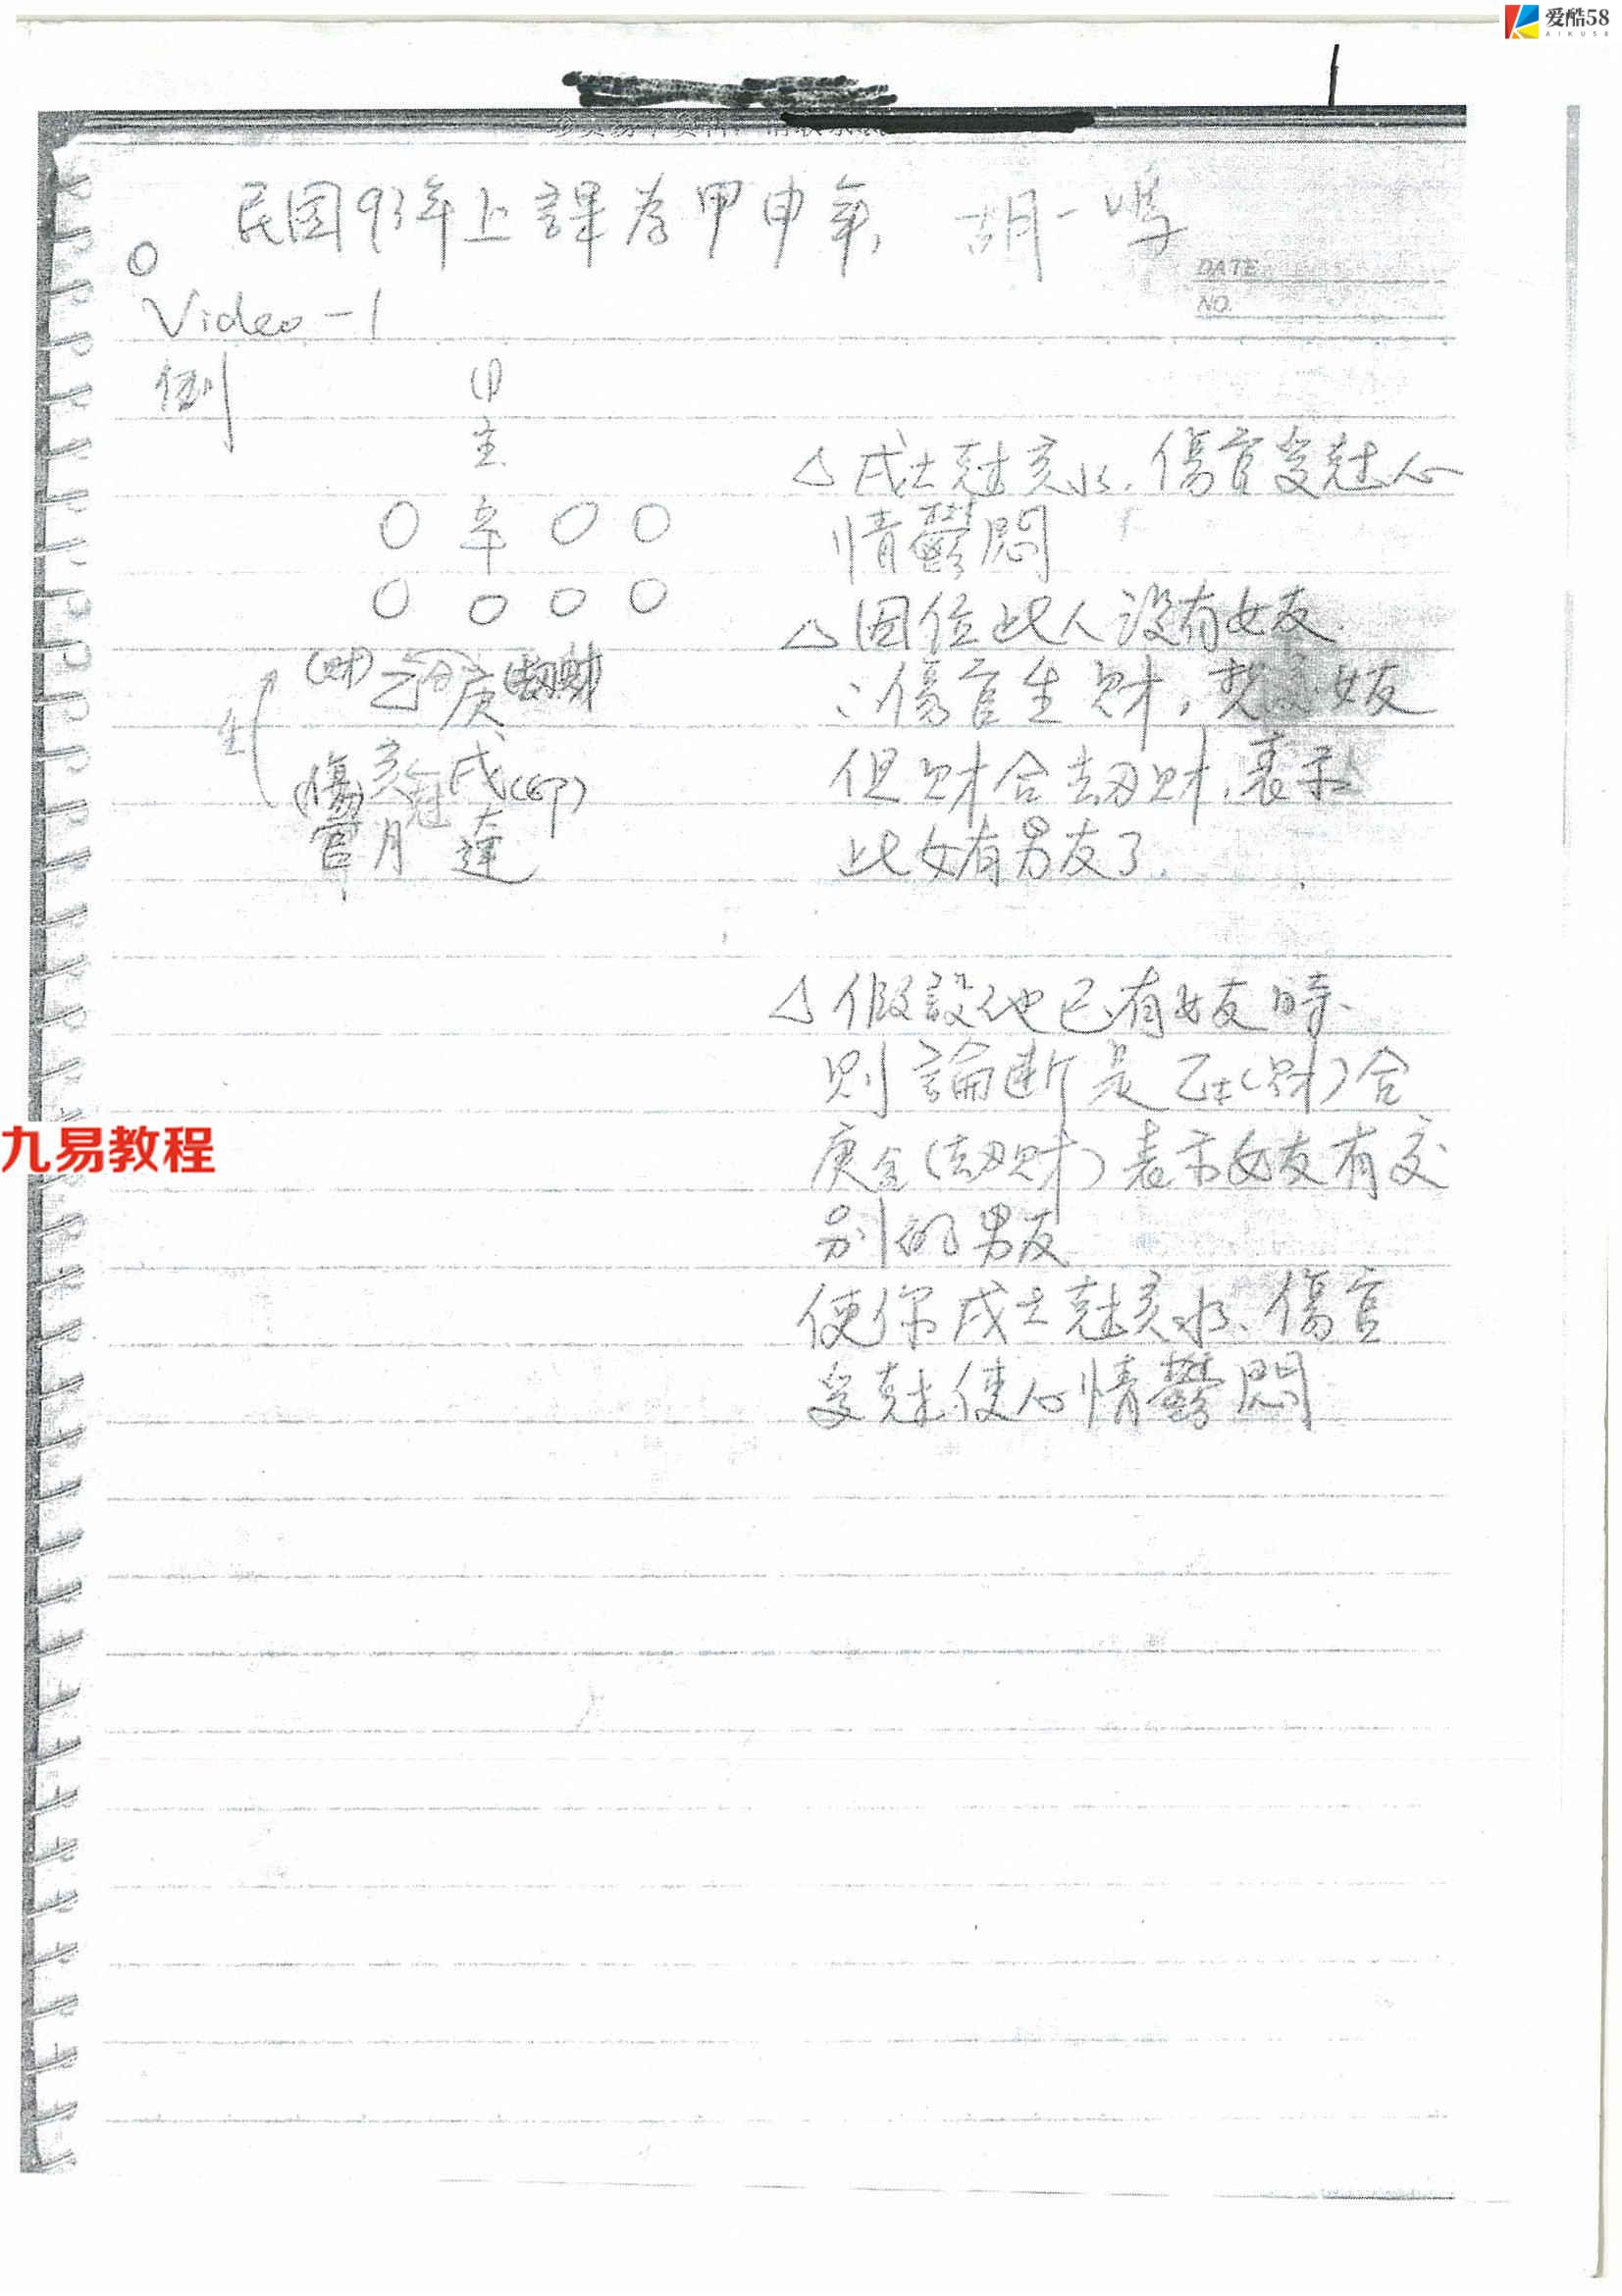 爱酷58
AIKU58
民国93年上課為甲申年, 胡一鳴
DATE
NO.
Video-1
例
(1)
主
○ 辛 ○ ○
○ ○ ○ ○
(財) 乙 合 庚 (劫財)
生
(傷官) 亥 尅 戌 (印)
月 運
△ 戌土尅亥水, 傷官受尅心
情鬱悶
△ 因位此人没有女友.
∴傷官生財, 想交女友
但財合劫財, 表示
此女有男友了.
△ 假設他已有女友時、
則論断是乙木(財)合
庚金(劫財)表示女友有交
别的男友
使你戌土尅亥水、傷官
受尅使心情鬱悶
九易教程